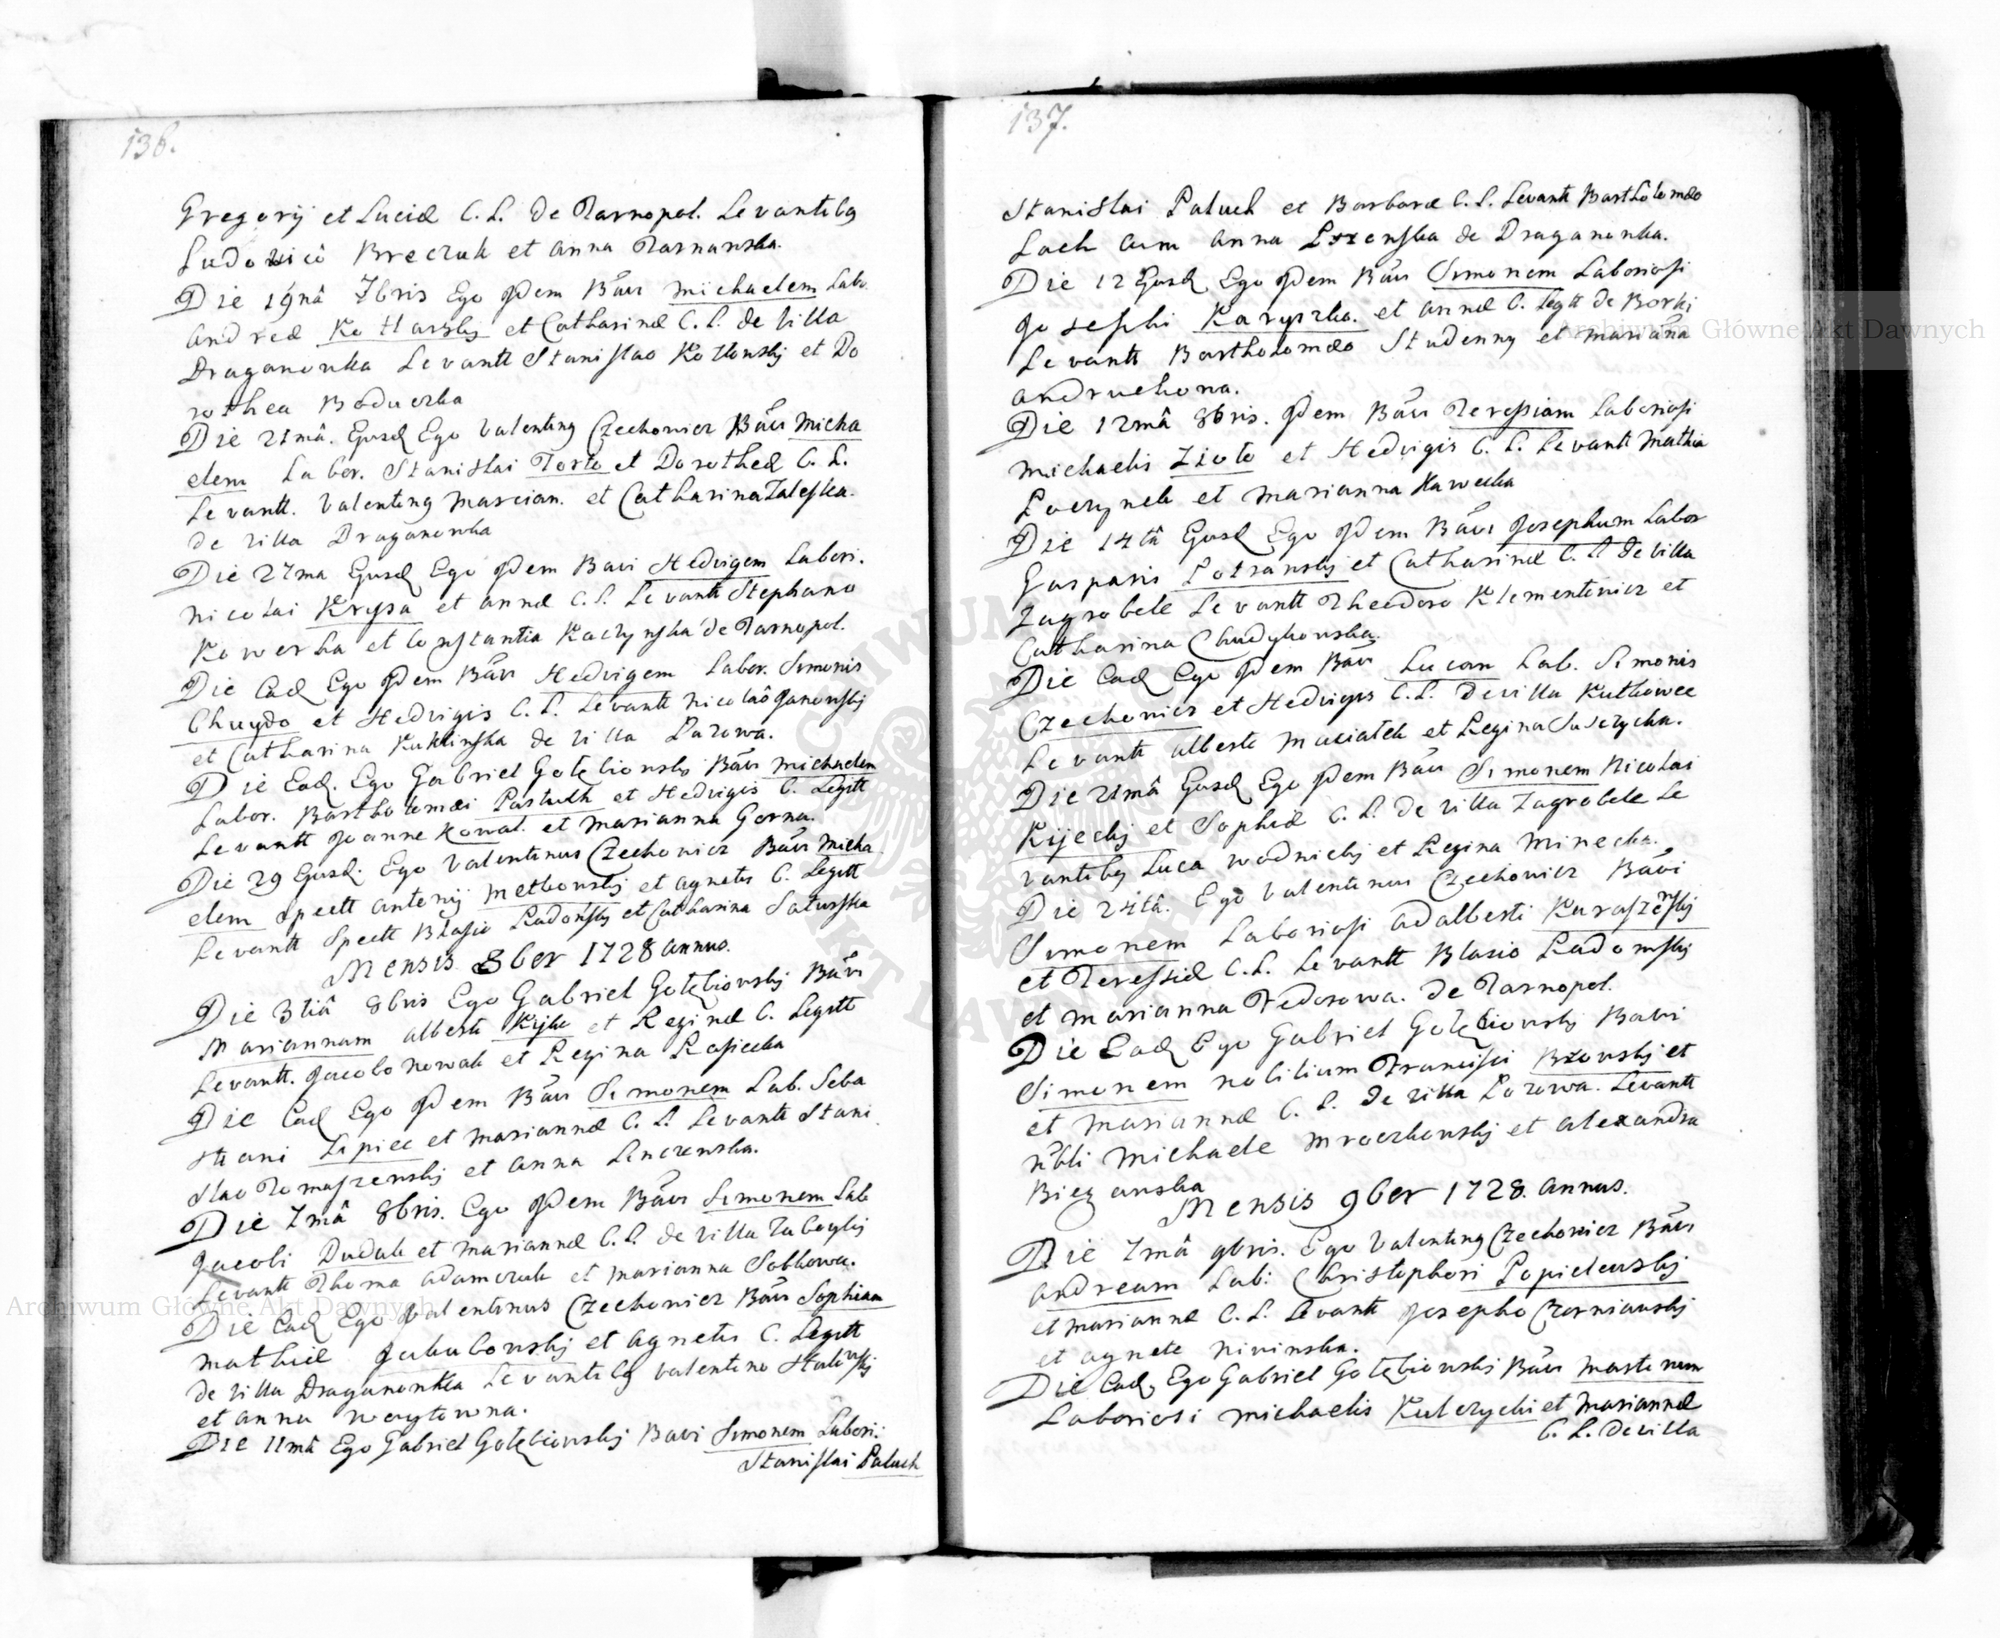 136.
Gregorij et Luciæ C. L. de Tarnopol. Levantibq
Ludovicô Breczuk et Anna Tarnawska.
Die 19nâ 7bris Ego Idem Bãvi Michaelem Labo
Andreæ Kotlarskj et Catharinæ C. L. de Villa
Draganowka Levantt Stanislao Kotlowskj et Do
rothea Boduczka
Die 21mâ. Ejusd Ego Valentinq Czechowicz Bãvi Micha
elem Labor. Stanislai Torto et Dorotheæ C. L.
Levantt. Valentinq Marcian. et Catharina Zaleska.
de Villa Draganowka
Die 27ma Ejusd Ego Idem Bavi Hedvigem Labori.
Nicolai Krysa et Annæ C. L. Levantt Stephano
Kowerka et Constantia Kaczynska de Tarnopol.
Die Ead Ego Idem Bãvi Hedvigem Labor. Simonis
Chuydo et Hedvigis C. L. Levantt Nicolaô Janowskj
et Catharina Kuklinska de Villa Pozowa.
Die Ead. Ego Gabriel Gołębiowskj Bãvi Michaelem
Labor. Bartholomæi Pastuch et Hedvigis C. Legitt
Levantt Joanne Kowal. et Marianna Gorna.
Die 29 Ejusd. Ego Valentinus Czechowicz Bãvi Micha
elem Spectt Antonij Metkowskj et Agnetis C. Legitt
Levantt Spectt Blasio Radonskj et Catharina
Mensis 8ber 1728 Annus.
Die 3tiâ 8bris Ego Gabriel Gołębiowskj Bãvi
Mariannam Alberti Kijko et Reginæ C. Legitt
Levantt. Jacobo Nowak et Regina
Die Ead Ego Idem Bãvi Simonem Lab. Seba
stiani Lipiec et Mariannæ C. L. Levantt Stani
slao Tomaszewskj et Anna Lenczewska.
Die 7mâ 8bris. Ego Idem Bãvi Simonem Lab
Jacobi Dudak et Mariannæ C. L. de Villa
Levantt Thoma Adamczuk et Marianna Sobkowa.
Die Ead Ego Valentinus Czechowicz Bãvi Sophiam
Mathiæ Jakubowskj et Agnetis C. Legitt
de Villa Draganowka Levantibq Valentino
et Anna
Die 11mâ Ego Gabriel Gołębiowskj Bavi Simonem Labori:
Stanislai Paluch
137.
Stanislai Paluch et Barbaræ C. L. Levantt Bartholomæo
Lach cum Anna de Draganowka.
Die 12 Ejusd Ego Idem Bãvi Simonem Laboriosi
Josephi Karyszka. et Annæ C. Legtt de Borki
Levantt Bartholomæo Studenny et Mariãna
Andruchowa.
Die 12mâ 8bris. Idem Bãvi Teressiam Laboriosi
Michaelis Zioło et Hedvigis C. L. Levantt Mathia
Poczynek et Marianna Kawecka
Die 14tâ Ejusd Ego Idem Bãvi Josephum Labor
Gasparis Potranskj et Catharinæ C. L de Villa
Zagrobele Levantt Theodoro Klementowicz et
Catharina Chudykowska.
Die Ead Ego Idem Bãvi Lucam Lab. Simonis
Czechowicz et Hedvigis C. L. de Villa Kutkowce
Levantt Alberto Maciałek et Regina
Die 21mâ Ejusd Ego Idem Bãvi Simonem Nicolai
Kijeckj et Sophiæ C. L. de Villa Zagrobele Le
vantibq Luca Wodnickj et Regina Minecka.
Die 24tâ. Ego Valentinus Czechowicz Bãvi
Simonem Laboriosi Adalberti Kuraszewskj
et Teressiæ C. L. Levantt Blasio Radomskj
et Marianna Fedorowa. de Tarnopol.
Die Ead Ego Gabriel Gołębiowskj Bavi
Simonem Nobilium Francisci Brzowskj et
et Mariannæ C. L. de Villa Pozowa. Levantt
Nbli Michaele Mroczkowskj et Alexandra
Mensis 9ber 1728. Annus.
Die 7mâ 9bris. Ego Valentinq Czechowicz Bãvi
Andream Lab: Christophori Popielewskj
et Mariannæ C. L. Levantt Josepho Czerniawskj
et Agnete Niwinska.
Die Ead. Ego Gabriel Gołębiowskj Bãvi Martinum
Laboriosi Michaelis Kulczycki et Mariannæ
C. L. de Villa
Archiwum Główne Akt Dawnych
Archiwum Główne Akt Dawnych
ARCHIWUM GŁÓWNE AKT DAWNYCH